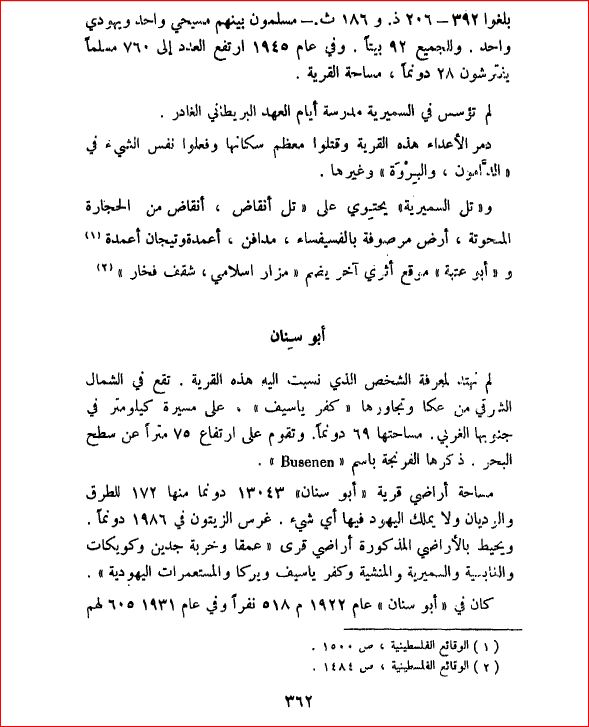 بلغوا ٣٩٢ – ٢٠٦ ذ. و ١٨٦ ث. – مسلمون بينهم مسيحي واحد ويهودي
واحد . وللجميع ٩٢ بيتاً . وفي عام ١٩٤٥ ارتفع العدد إلى ٧٦٠ مسلماً
ينترشون ٢٨ دونماً ، مساحة القرية .
لم تؤسس في السميرية مدرسة أيام العهد البريطاني الغادر .
دمر الأعداء هذه القرية وقتلوا معظم سكانها وفعلوا نفس الشيء في
« الدَّامون ، والبِرْوَة » وغيرها .
و« تل السميرية» يحتوي على « تل أنقاض ، أنقاض من الحجارة
المنحوتة ، أرض مرصوفة بالفسيفساء ، مدافن ، أعمدة وتيجان أعمدة (١)
و « أبو عتبة » موقع أثري آخر يضم « مزار اسلامي ، شقف فخار » (٢)
أبو سِنان
لم نهتد لمعرفة الشخص الذي نسبت اليه هذه القرية . تقع في الشمال
الشرقي من عكا وتجاورها « كفر ياسيف » ، على مسيرة كيلومتر في
جنوبها الغربي . مساحتها ٦٩ دونماً. وتقوم على ارتفاع ٧٥ متراً عن سطح
البحر . ذكرها الفرنجة باسم « Busenen » .
مساحة أراضي قرية « أبو سنان» ١٣٠٤٣ دونما منها ١٧٢ للطرق
والوديان ولا يملك اليهود فيها أي شيء . غرس الزيتون في ١٩٨٦ دونماً .
ويحيط بالأراضي المذكورة أراضي قرى « عمقا وخربة جدين وكويكات
والغابسية والسميرية والمنشية وكفر ياسيف ويركا والمستعمرات اليهودية » .
كان في « أبو سنان » عام ١٩٢٢ م ٥١٨ نفراً وفي عام ١٩٣١ ٦٠٥ لهم
( ١ ) الوقائع الفلسطينية ، ص ١٥٠٠ .
( ٢ ) الوقائع الفلسطينية ، ص ١٤٨٤ .
٣٦٢